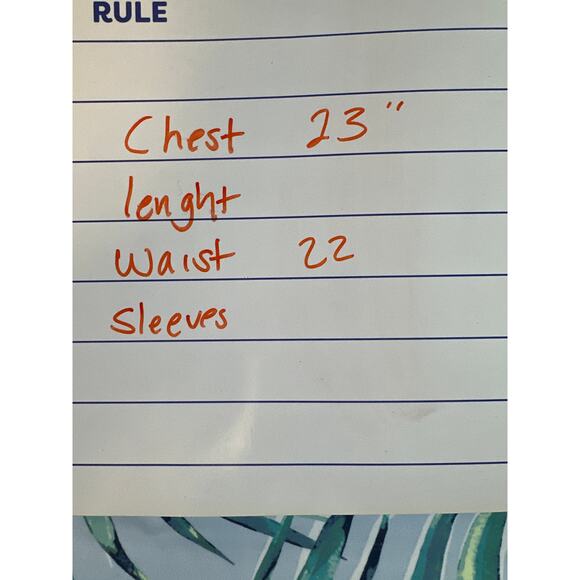 RULE
Chest 23"
lenght
Waist 22
Sleeves